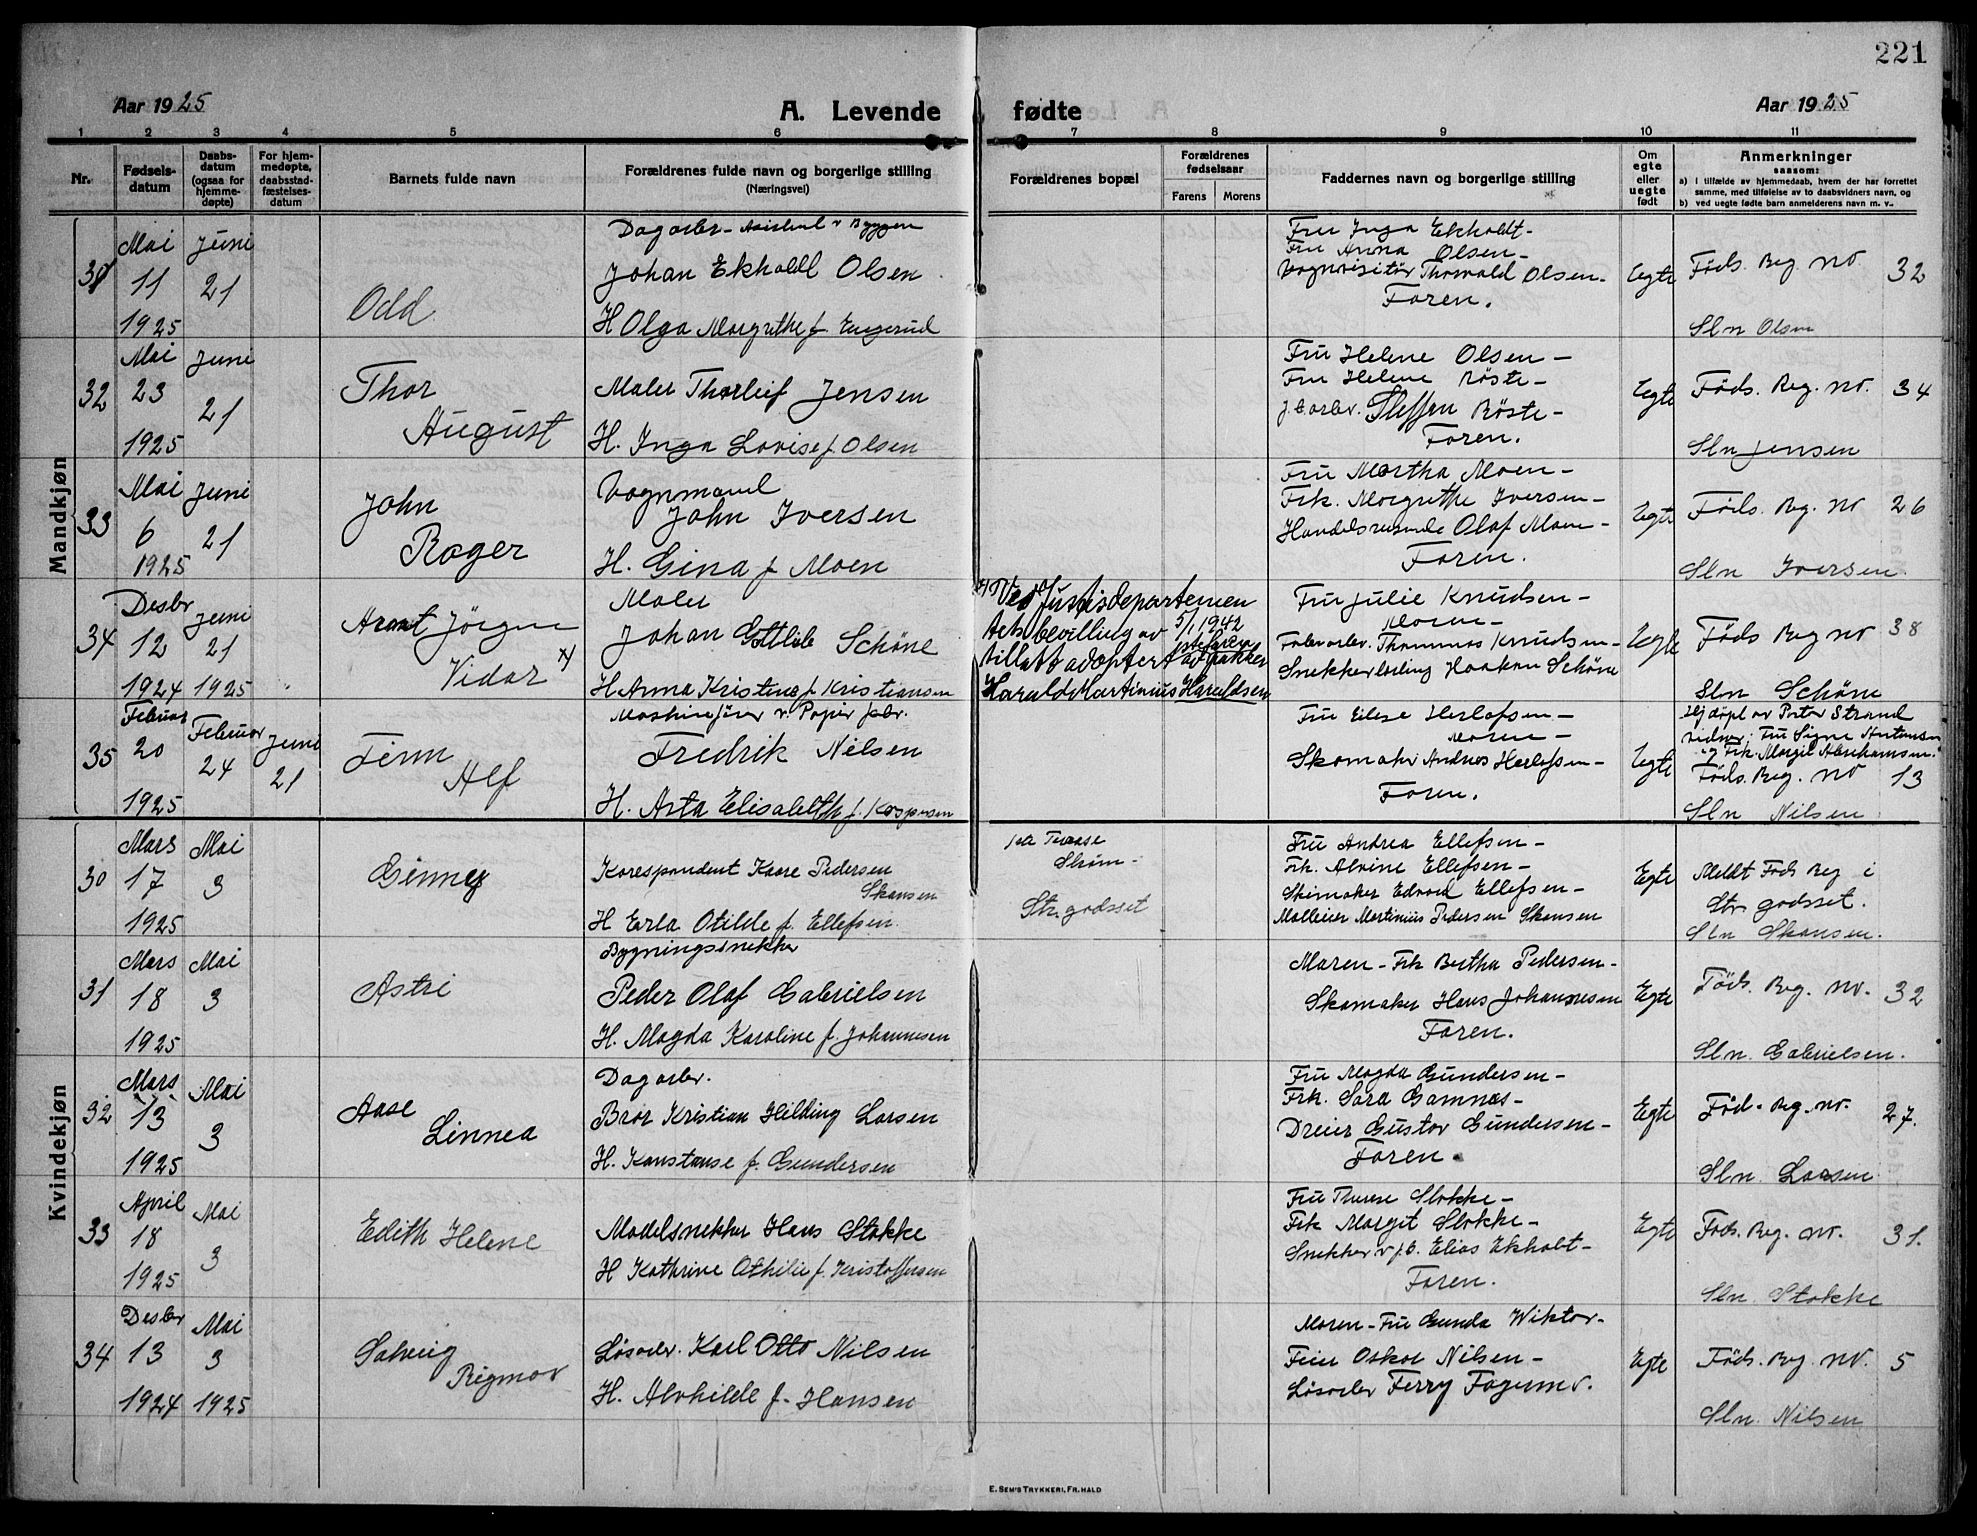 221
Aar 1925
A. Levende fødte
Aar 1925
1 2 3 4 5 6 7 8 9 10 11
Nr.
Fødsels-
datum
Daabs-
datum
(ogsaa for
hjemme-
døpte)
For hjem-
medøpte,
daabsstad-
fæstelses-
datum
Barnets fulde navn
Forældrenes fulde navn og borgerlige stilling
(Næringsvei)
Forældrenes bopæl
Forældrenes
fødselsaar
Farens Morens
Faddernes navn og borgerlige stilling
Om
egte
eller
uegte
født
Anmerkninger
saasom:
a) I tilfælde av hjemmedaab, hvem der har forrettet
samme, med tilføielse av to daabsvidners navn, og
b) ved uegte fødte barn anmelderens navn m. v.
Mandkjøn
31
Mai
11
1925
Juni
21
Odd
Dagarbr.
Johan Ekholdt Olsen
H Olga Margrethe f. Engerud
Fru Inga Ekholdt-
Fru Anna Olsen-
Vognvisitør Thorvald Olsen-
Faren.
Egte
Føds. Reg no 32
Sln Olsen
32
Mai
23
1925
Juni
21
Thor
August
Maler Thorleif Jensen
H. Inga Lovise f. Olsen
Fru Helene Olsen-
Fru Helene Røste-
J.b.arbr. Steffen Røste-
Faren.
Egte
Føds. Reg. no. 34
Sln Jensen
33
Mai
6
1925
Juni
21
John
Roger
Vognmand
John Iversen
H. Gina f Moen
Fru Martha Moen-
Frk. Margrethe Iversen-
Handelsreisende Olaf Moen-
Faren.
Egte
Føds. Reg. no 26
Sln Iversen
34
Desbr
12
1924
Juni
21
1925
Arant Jørgen
Vidar x)
Maler
Johan Gottlieb Schöne
H. Anna Kristine f Kristiansen
x) Ved Justisdepartemen
tets bevilling av 5/1.1942
tillatt adoptert av pakker
Harald Martinius Haraldsen
Fru Julie Knudsen-
Moren-
Fabr.arbr. Thommas Knudsen-
Snekkerlærling Haakon Schöne
Egte
Føds Reg no 38
Sln Schöne
35
Februar
20
1925
Februar
24
Juni
21
Finn
Alf
Maskinfører v. Papir fabr.
Fredrik Nilsen
H. Asta Elisabeth f. Kaspersen
Fru Elise Herlofsen-
Moren-
Skomaker Andreas Herlofsen-
Faren.
Egte
Hj døpt av Pastor Strand
Vidner: Fru Signe Antonsen
og Frk. Margit Abrahamsen.
Føds. Reg. no 13
Sln Nilsen
Kvindekjøn
30
Mars
17
1925
Mai
3
Ginny
Korespondent Kaare Pedersen
Skansen
H Erla Otilde f. Ellefsen
Strøm-
Str. godsset
Fru Andrea Ellefsen-
Frk. Alvine Ellefsen-
Skimaker Edvard Ellefsen-
Møllerier Martinius Pedersen Skansen
Egte
Meldt Føds Reg i
Str godsset.
Sln Skansen.
31
Mars
18
1925
Mai
3
Astri
Bygningssnekker
Peder Olaf Gabrielsen
H. Magda Karoline f. Johannesen
Moren- Frk Bertha Pedersen-
Skomaker Hans Johannesen
Faren.
Egte
Føds. Reg. no. 32
Sln. Gabrielsen.
32
Mars
13
1925
Mai
3
Aase
Linnea
Dagarbr.
Bror Kristian Hilding Larsen
H. Konstanse f. Gundersen
Fru Magda Gundersen-
Frk. Sara Gamnæs-
Dreier Gustav Gundersen-
Faren.
Egte
Fød. Reg. no. 27.
Sln. Larsen
33
April
18
1925
Mai
3
Edith Helene
Modelsnekker Hans Stokke
H Kathrine Othilie f. Kristoffersen
Fru Therese Stokke-
Frk Margit Stokke-
Snekker v j.b. Elias Ekholt-
Faren.
Egte
Føds. Reg. no. 31.
Sln. Stokke
34
Desbr
13
1924
Mai
3
1925
Solveig
Rigmor
Løsarbr. Karl Otto Nilsen
H. Alvhilde f. Hansen
Moren- Fru Gunda Wiktor-
Feier Oskar Nilsen-
Løsarbr Ferry Fagermo.
Egte
Føds. Reg no. 5
Sln. Nilsen
E. SEM'S TRYKKERI, FR. HALD